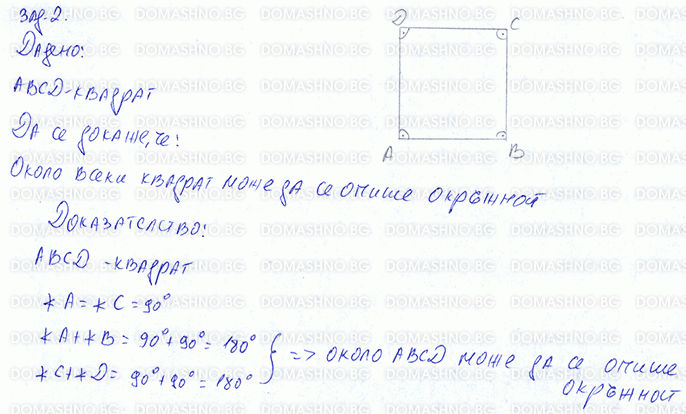 зад. 2.
Дадено:
ABCD - квадрат
Да се докаже, че:
Около всеки квадрат може да се опише окръжност
Доказателство:
ABCD - квадрат
∢A = ∢C = 90°
∢A + ∢B = 90° + 90° = 180°
∢C + ∢D = 90° + 90° = 180° } => около ABCD може да се опише
окръжност
D C
A B
DOMASHNO.BG